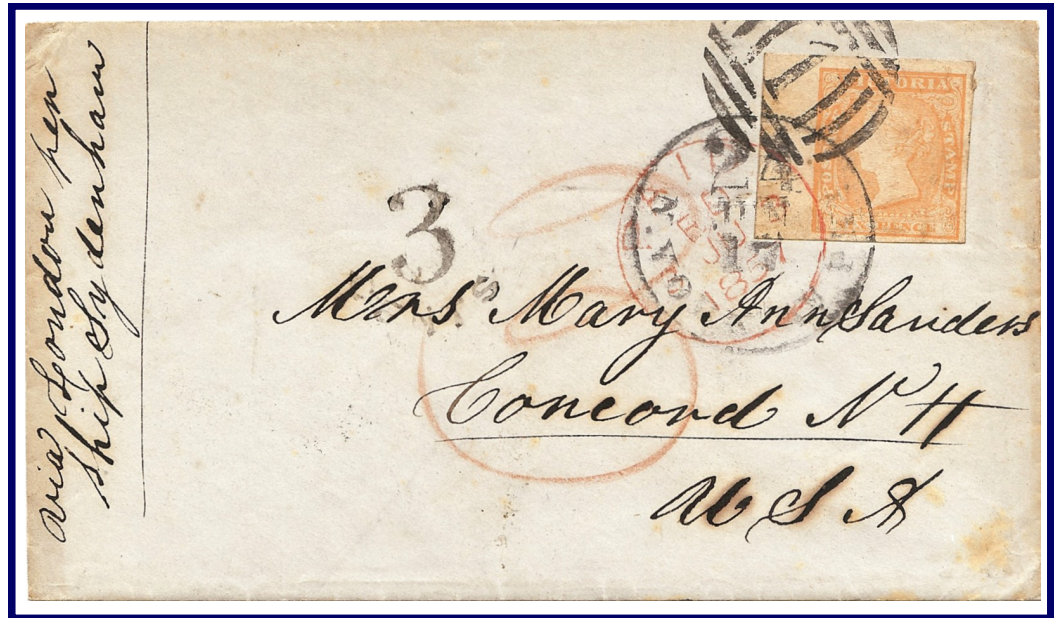 via London per
ship Sydenham
VICTORIA
STAMP
3
24
17
Mrs Mary Ann Sanders
Concord N H
U S A